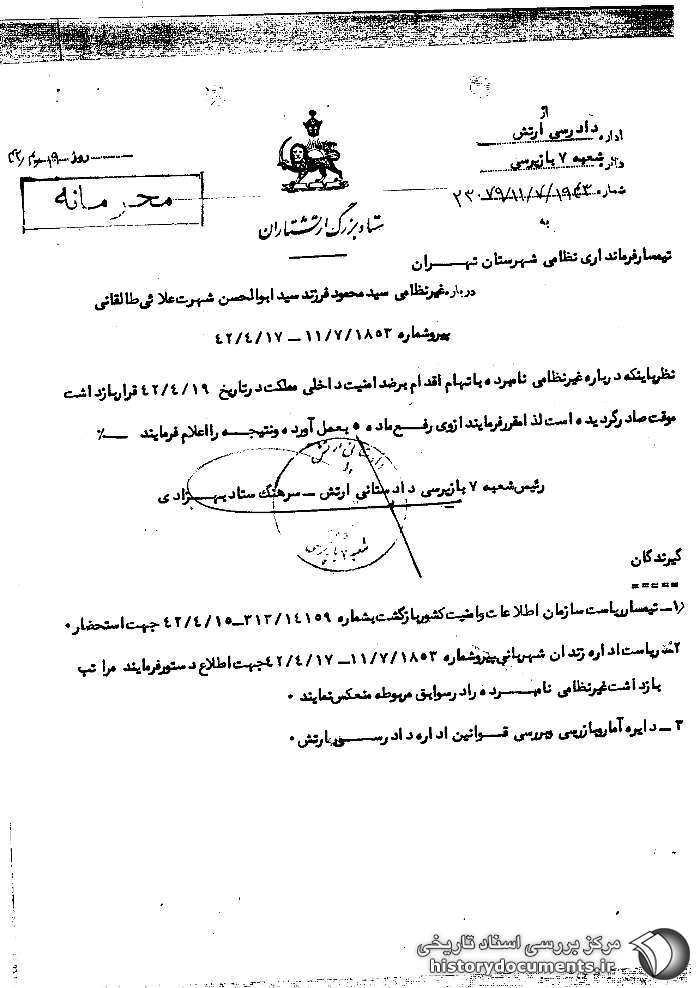 از
اداره دادرسی ارتش
دائره شعبه ۷ بازپرسی
شماره ۲۳۰۷۹/۱۱/۷/۱۹۴۳
به
روز ۱۹
محرمانه
ستاد بزرگ ارتشتاران
تیمسار فرمانداری نظامی شهرستان تهران
درباره غیرنظامی سید محمود فرزند سید ابوالحسن شهرت علائی طالقانی
پیرو شماره ۱۱/۷/۱۸۵۳ – ۴۲/۴/۱۷
نظر باینکه درباره غیرنظامی نامبرده باتهام اقدام برضد امنیت داخلی مملکت در تاریخ ۴۲/۴/۱۹ قرار بازداشت
موقت صادر گردیده است لذا مقرر فرمایند از وی رفع ماده ۵ بعمل آورده و نتیجه را اعلام فرمایند ٪
رئیس شعبه ۷ بازپرسی دادستانی ارتش – سرهنگ ستاد بهزادی
دادستانی ارتش
شعبه ۷ بازپرسی
گیرندگان
=====
۱– تیمسار ریاست سازمان اطلاعات وامنیت کشور بازگشت بشماره ۳۱۳/۱۴۱۵۹–۴۲/۴/۱۵ جهت استحضار ۰
۲– ریاست اداره زندان شهربانی پیرو شماره ۱۱/۷/۱۸۵۳ – ۴۲/۴/۱۷ جهت اطلاع دستور فرمایند مراتب
بازداشت غیرنظامی نامبرده را در سوابق مربوطه منعکس نمایند ۰
۳ – دایره آمار و بازرسی و بررسی قوانین اداره دادرسی ارتش ۰
مرکز بررسی اسناد تاریخی
historydocuments.ir